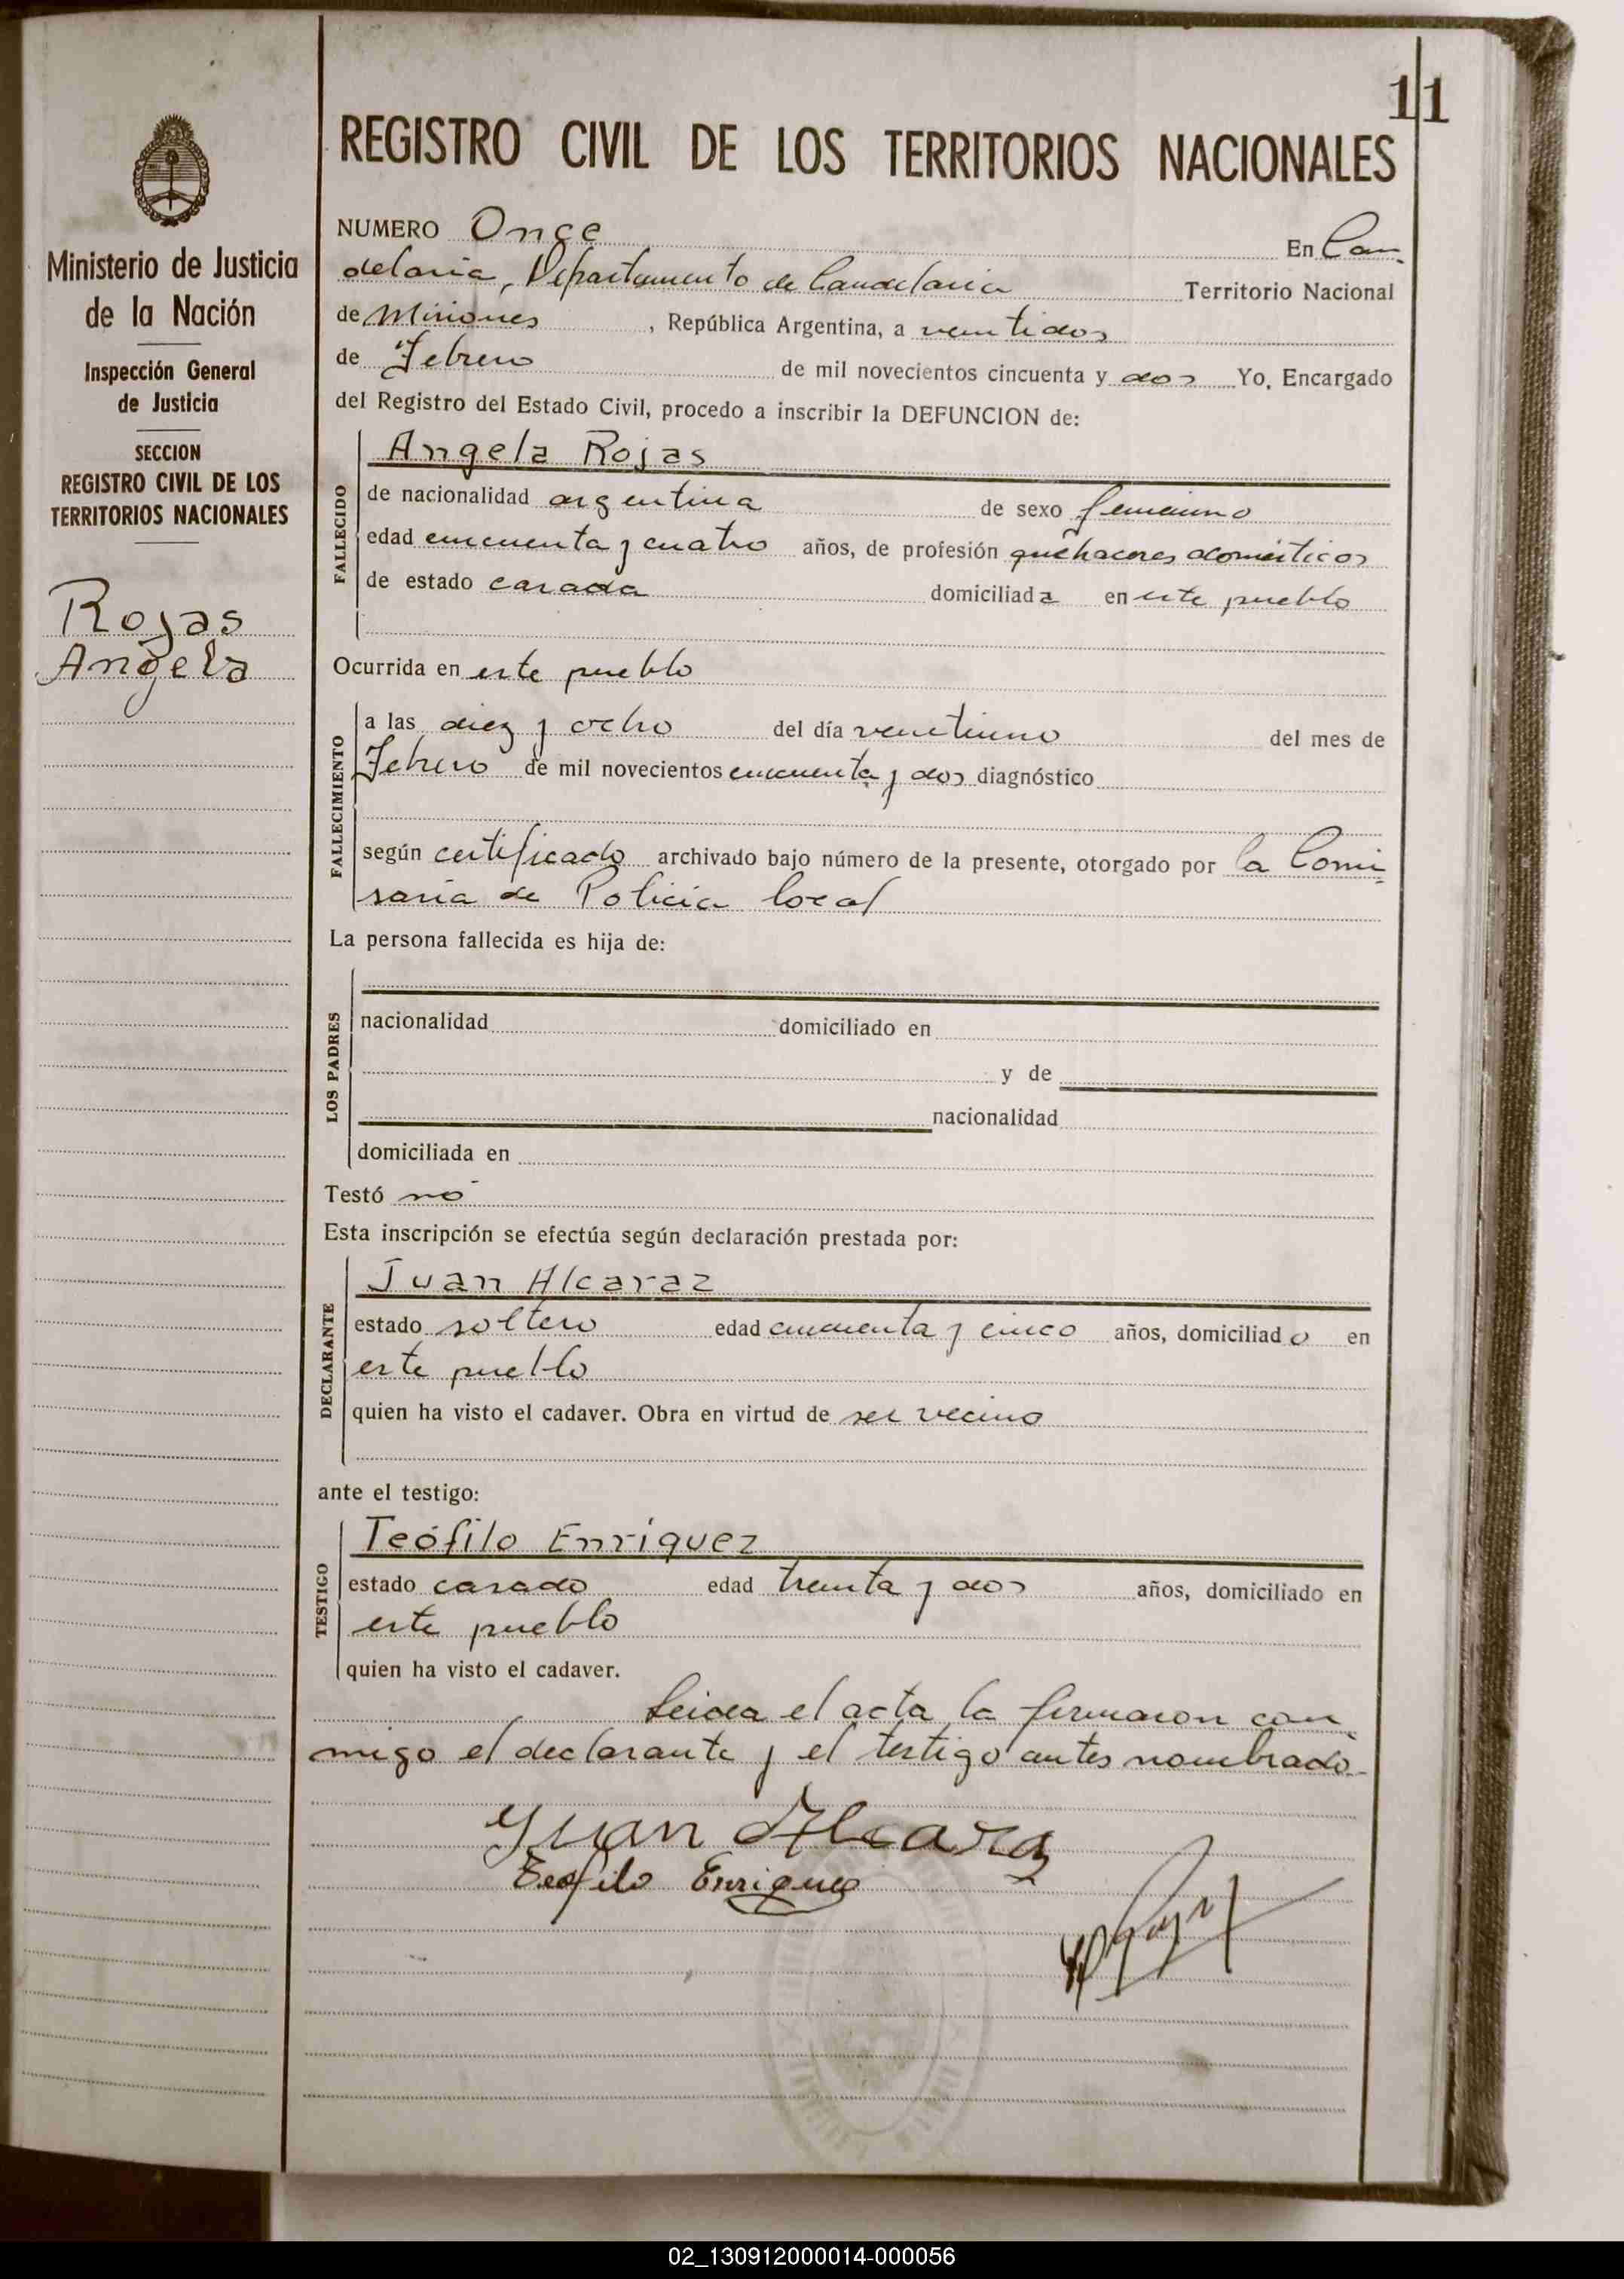 11
REGISTRO CIVIL DE LOS TERRITORIOS NACIONALES
Ministerio de Justicia
de la Nación
Inspección General
de Justicia
SECCION
REGISTRO CIVIL DE LOS
TERRITORIOS NACIONALES
Rojas
Angela
NUMERO Once En Can-
delaria, Departamento de Candelaria Territorio Nacional
de Misiones, República Argentina, a veintidos
de Febrero de mil novecientos cincuenta y dos Yo, Encargado
del Registro del Estado Civil, procedo a inscribir la DEFUNCION de:
FALLECIDO
Angela Rojas
de nacionalidad argentina de sexo femenino
edad cincuenta y cuatro años, de profesión quehaceres domésticos
de estado casada domiciliada en este pueblo
Ocurrida en este pueblo
FALLECIMIENTO
a las diez y ocho del día veintiuno del mes de
Febrero de mil novecientos cincuenta y dos diagnóstico
según certificado archivado bajo número de la presente, otorgado por la Comi-
saria de Policia local
La persona fallecida es hija de:
LOS PADRES
nacionalidad domiciliado en
y de
nacionalidad
domiciliada en
Testó no
Esta inscripción se efectúa según declaración prestada por:
DECLARANTE
Juan Alcaraz
estado soltero edad cincuenta y cinco años, domiciliado en
este pueblo
quien ha visto el cadaver. Obra en virtud de ser vecino
ante el testigo:
TESTIGO
Teófilo Enriquez
estado casado edad treinta y dos años, domiciliado en
este pueblo
quien ha visto el cadaver.
Leida el acta la firmaron con-
migo el declarante y el testigo antes nombrado-
Juan Alcaraz
Teofilo Enriquez
02_130912000014-000056